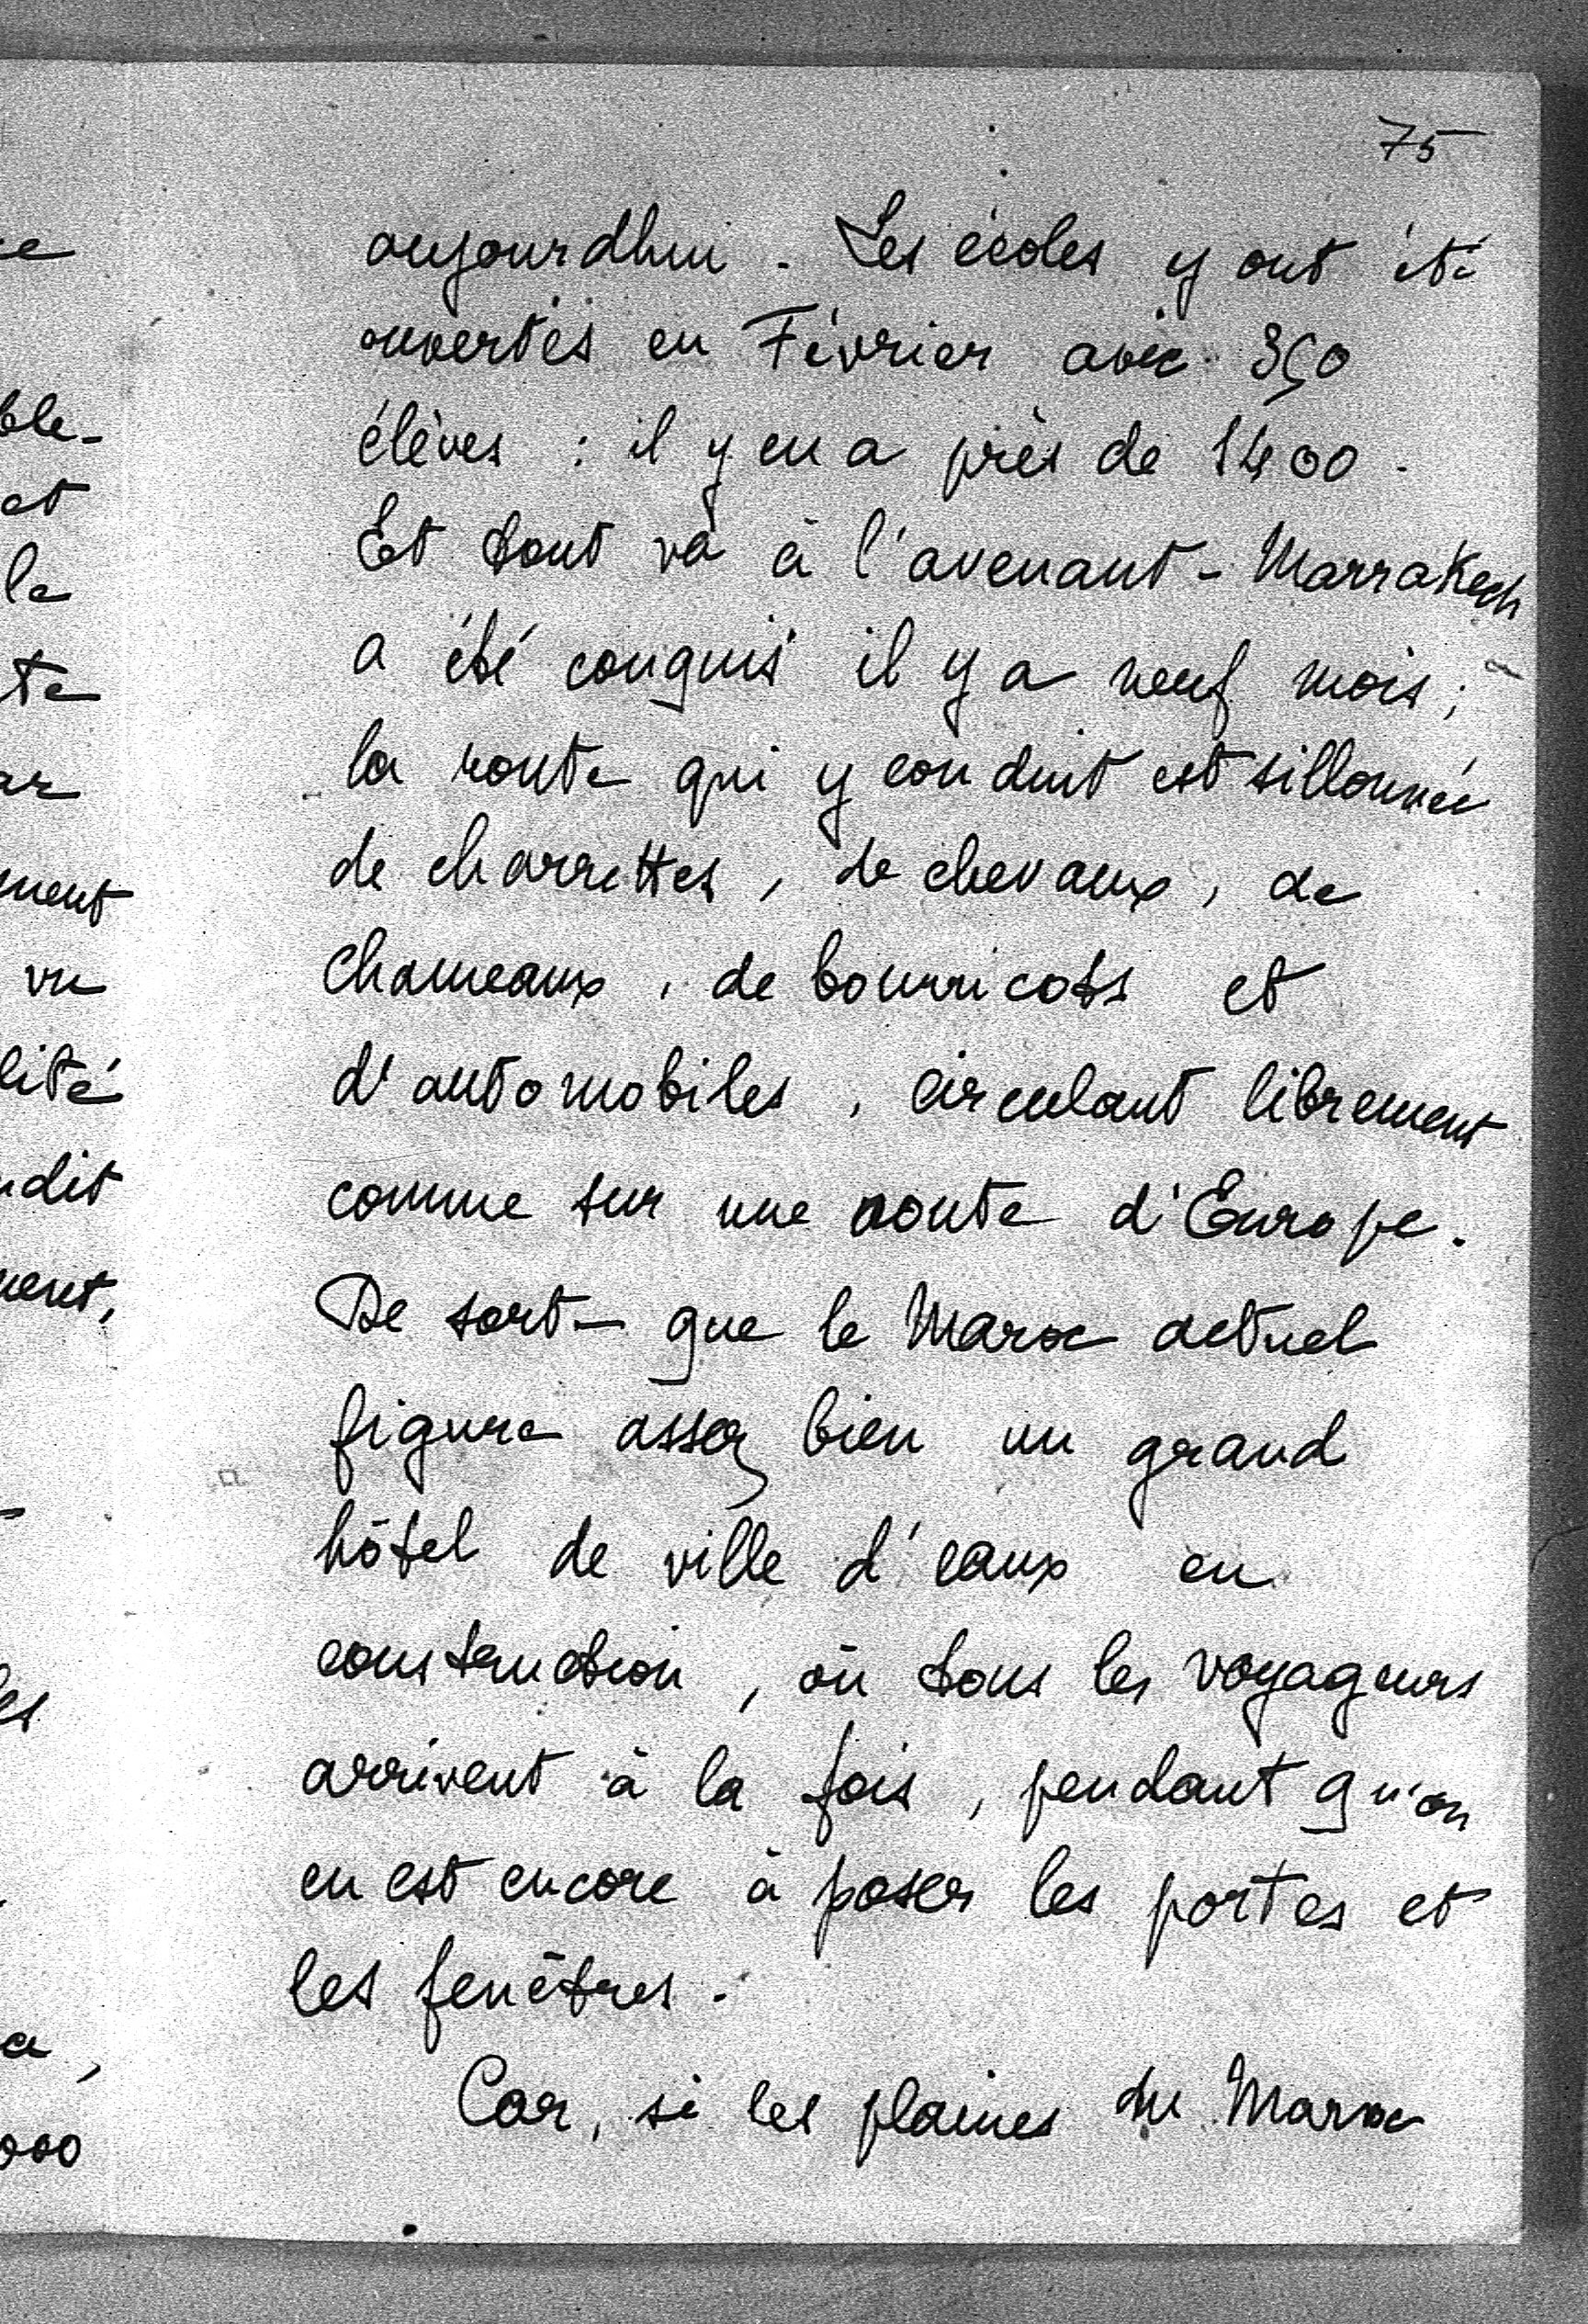 75
aujourdhui. Les écoles y ont été
ouvertes en Février avec 350
élèves : il y en a près de 1400.
Et tout va à l'avenant - Marrakech
a été conquis il y a neuf mois ;
la route qui y conduit est sillonnée
de charrettes, de chevaux, de
chameaux, de bourricots et
d'automobiles, circulant librement
comme sur une route d'Europe.
De sorte que le Maroc actuel
figure assez bien un grand
hôtel de ville d'eaux en
construction, où tous les voyageurs
arrivent à la fois, pendant qu'on
en est encore à poser les portes et
les fenêtres.
Car, si les plaines du Maroc